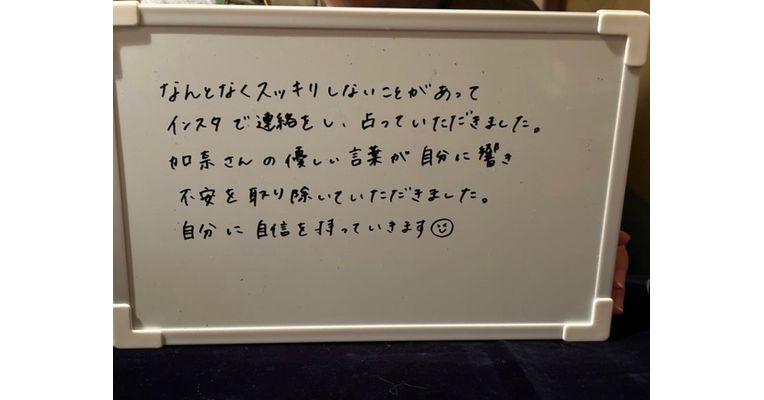 なんとなくスッキリしないことがあって
インスタで連絡をし、占っていただきました。
加奈さんの優しい言葉が自分に響き
不安を取り除いていただきました。
自分に自信を持っていきます☺